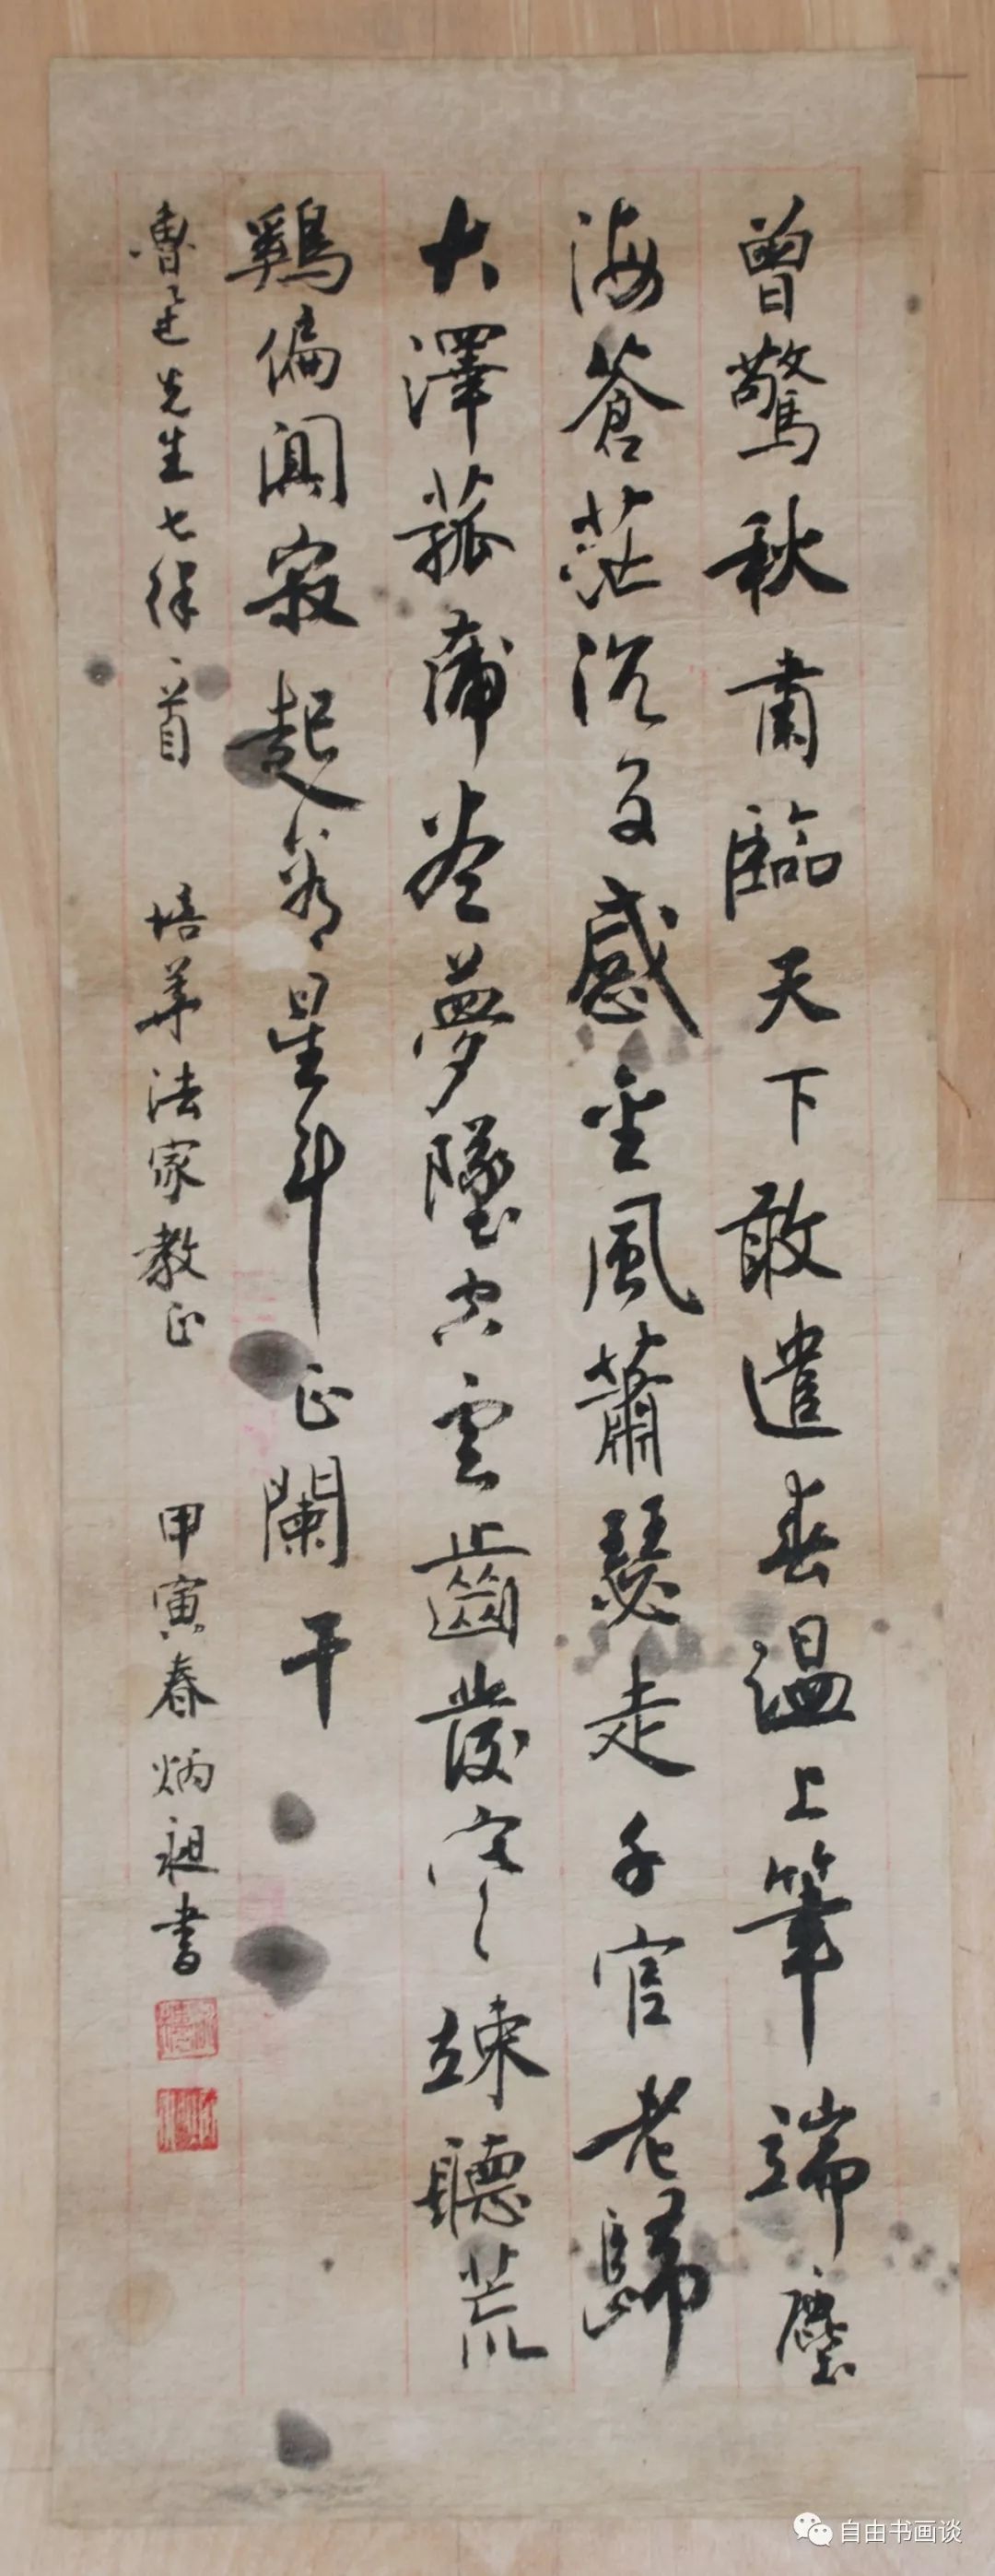 曾驚秋肅臨天下敢遣春温上筆端塵
海蒼茫沉百感金風蕭瑟走千官老歸
大澤菰蒲盡夢墜空雲齒髮寒竦聽荒
鷄偏闃寂起看星斗正闌干
魯迅先生七律一首 培華法家教正 甲寅春炳昶書
自由书画谈